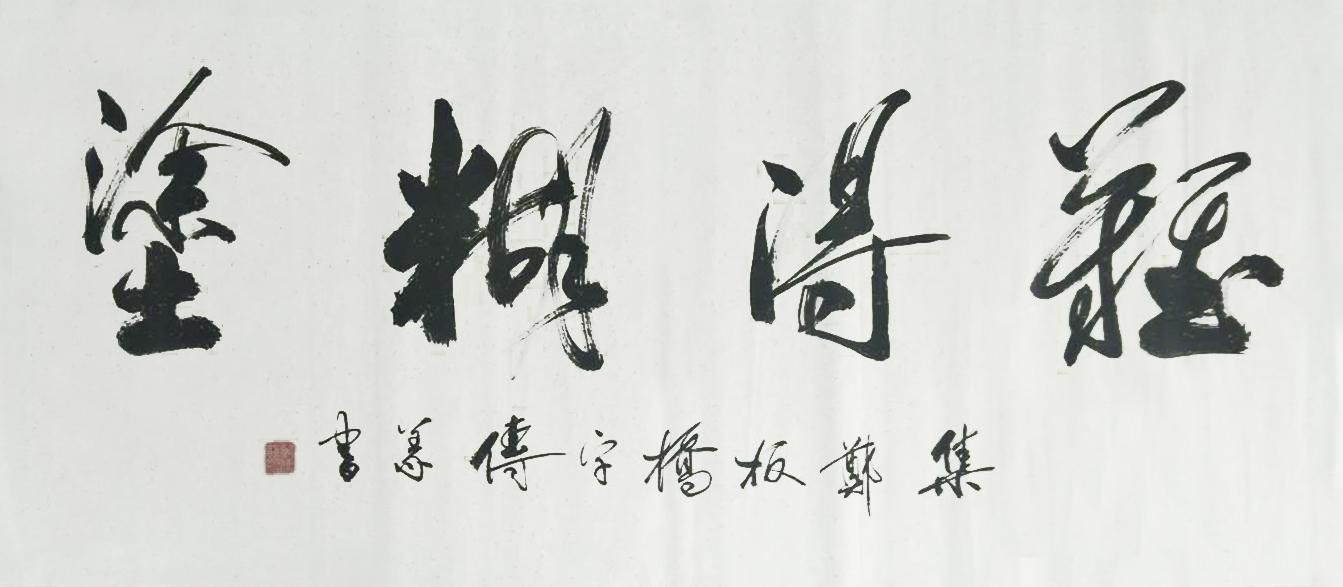 難得糊塗
集鄭板橋字傅義書